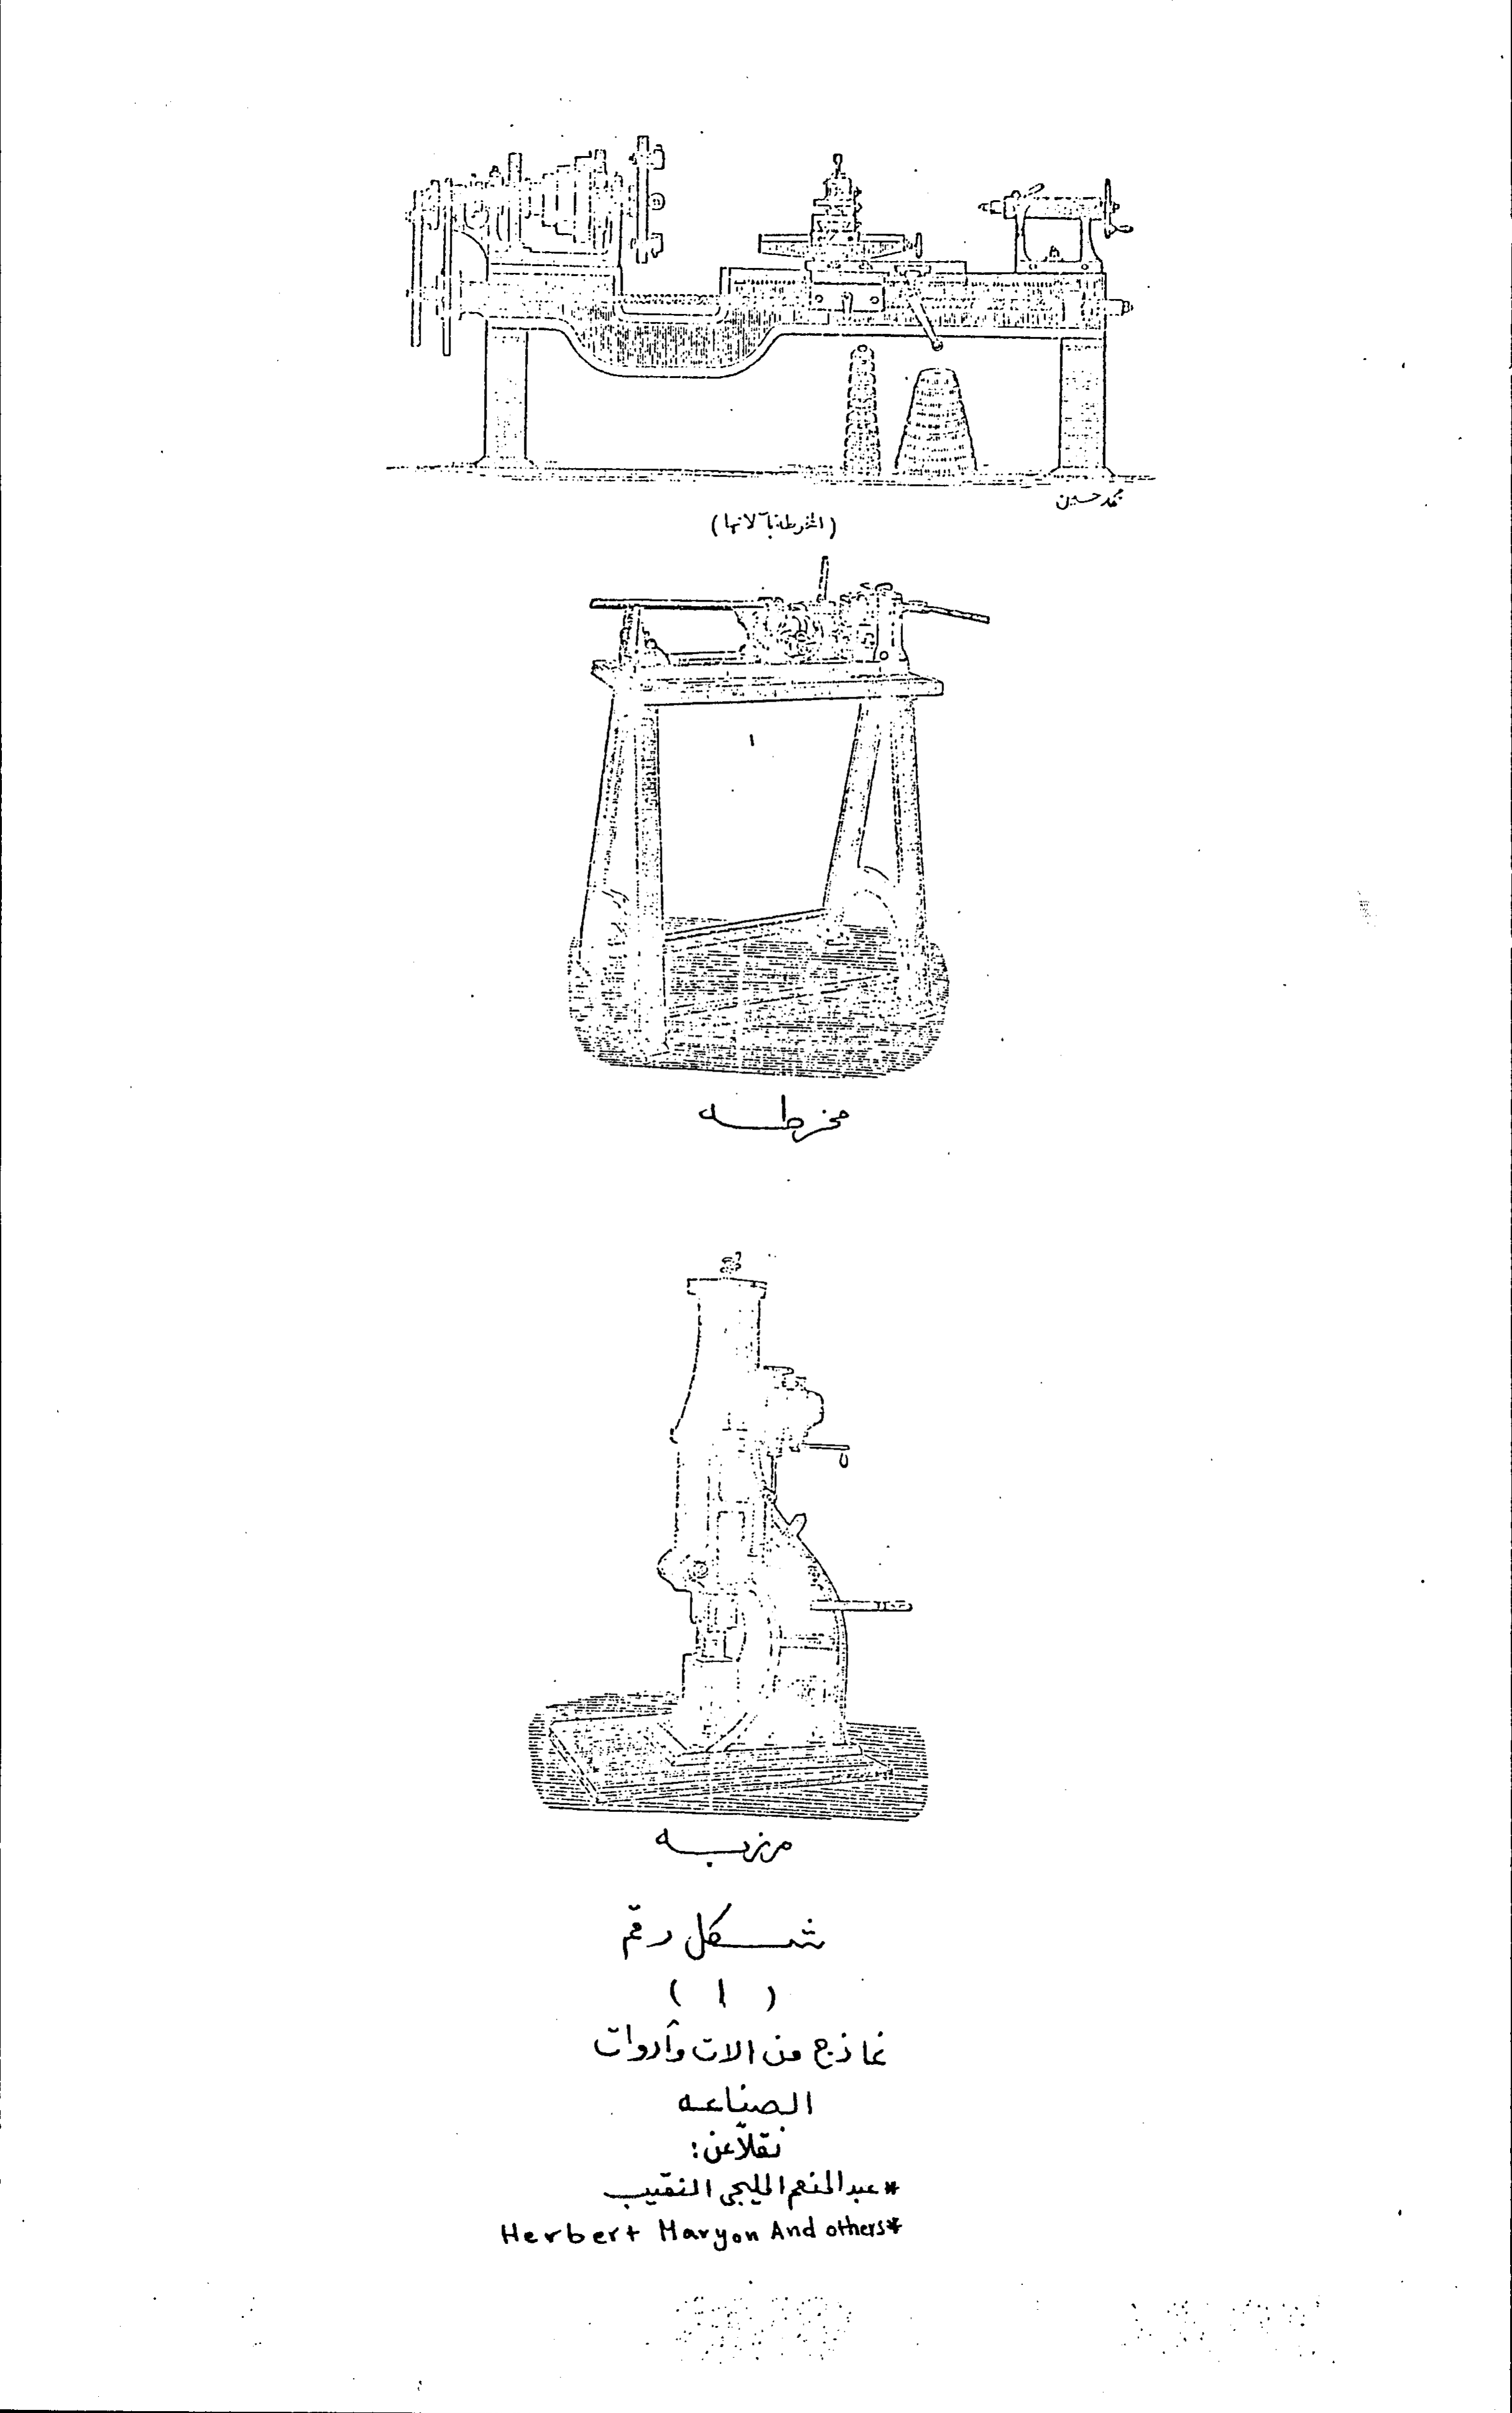 محمد حسين
(المخرطة بآلاتها)
مخرطه
مرزبه
شكل رقم
( ١ )
نماذج من الات وأدوات
الصناعه
نقلاً عن:
* عبد المنعم المليجى النقيب
Herbert Maryon And others*